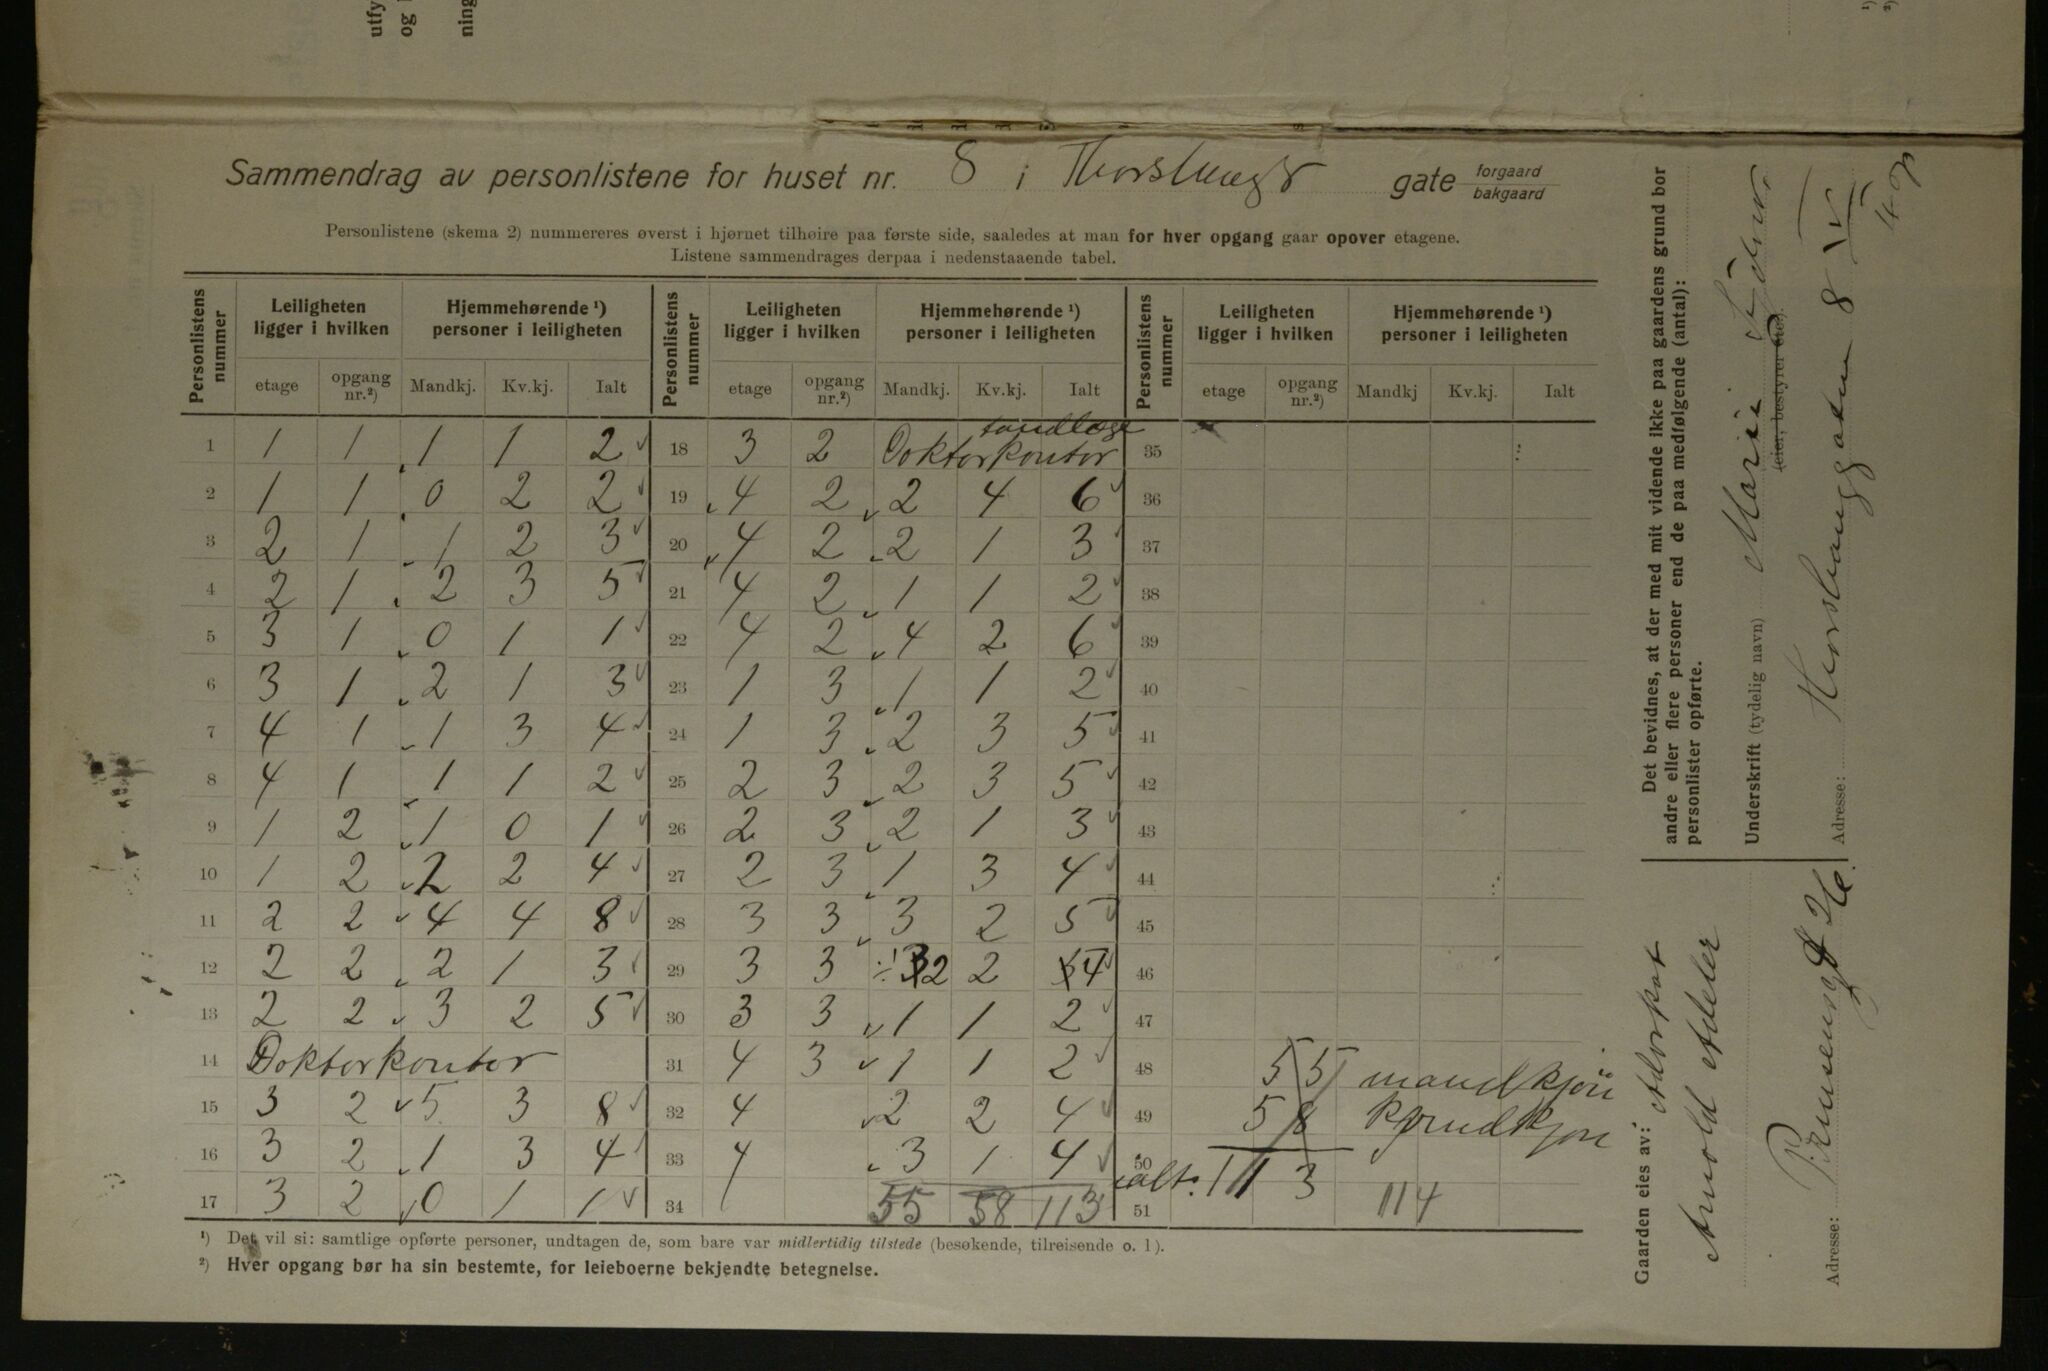 Sammendrag av personlistene for huset nr. 8 i gate forgaard bakgaard
Personlistene (skema 2) nummereres øverst i hjørnet tilhøire paa første side, saaledes at man for hver opgang gaar opover etagene.
Listene sammendrages derpaa i nedenstaaende tabel.
Personlistens nummer | Leiligheten ligger i hvilken | Hjemmehørende ¹) personer i leiligheten | Personlistens nummer | Leiligheten ligger i hvilken | Hjemmehørende ¹) personer i leiligheten | Personlistens nummer | Leiligheten ligger i hvilken | Hjemmehørende ¹) personer i leiligheten
etage | opgang nr.²) | Mandkj. | Kv.kj. | Ialt | etage | opgang nr.²) | Mandkj. | Kv.kj. | Ialt | etage | opgang nr.²) | Mandkj | Kv.kj. | Ialt
1 1 1 1 1 2 18 3 2 tandlæge Doktorkontor 35
2 1 1 0 2 2 19 4 2 2 4 6 36
3 2 1 1 2 3 20 4 2 2 1 3 37
4 2 1 2 3 5 21 4 2 1 1 2 38
5 3 1 0 1 1 22 4 2 4 2 6 39
6 3 1 2 1 3 23 1 3 1 1 2 40
7 4 1 1 3 4 24 1 3 2 3 5 41
8 4 1 1 1 2 25 2 3 2 3 5 42
9 1 2 1 0 1 26 2 3 2 1 3 43
10 1 2 2 2 4 27 2 3 1 3 4 44
11 2 2 4 4 8 28 3 3 3 2 5 45
12 2 2 2 1 3 29 3 3 2 2 4 46
13 2 2 3 2 5 30 3 3 1 1 2 47
14 Doktorkontor 31 4 3 1 1 2 48 55 mandkjøn
15 3 2 5 3 8 32 4 2 2 4 49 58
16 3 2 1 3 4 33 4 3 1 4 50
17 3 2 0 1 1 34 55 58 113 51 ialt: 113 114
¹) Det vil si: samtlige opførte personer, undtagen de, som bare var midlertidig tilstede (besøkende, tilreisende o. l).
²) Hver opgang bør ha sin bestemte, for leieboerne bekjendte betegnelse.
Det bevidnes, at der med mit vidende ikke paa gaardens grund bor
andre eller flere personer end de paa medfølgende (antal):
personlister opførte.
Underskrift (tydelig navn) Marie
(eier, bestyrer etc.)
Adresse: 8 IV
Gaarden eies av: Advokat
Arnold
Adresse: 26.